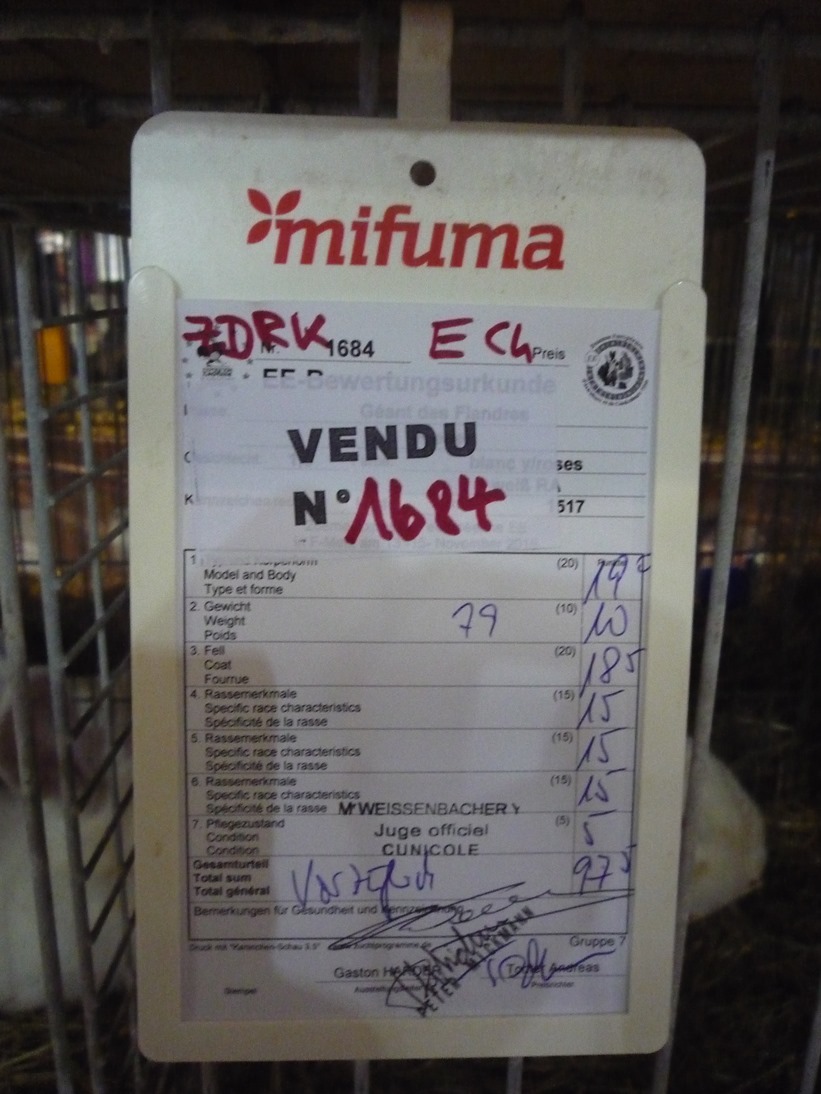 mifuma
ZDRK Nr. 1684 E Ch Preis
EE-Bewertungsurkunde
Géant des Flandres
VENDU
ses
N° 1684
517
1.
Model and Body
Type et forme
(20)
19
2. Gewicht
Weight
Poids
79
(10)
10
3. Fell
Coat
Fourrue
(20)
18 5
4. Rassemerkmale
Specific race characteristics
Spécificité de la rasse
(15)
15
5. Rassemerkmale
Specific race characteristics
Spécificité de la rasse
(15)
15
6. Rassemerkmale
Specific race characteristics
Spécificité de la rasse
(15)
15
Mr WEISSENBACHER Y
Juge officiel
CUNICOLE
7. Pflegezustand
Condition
Condition
(5)
5
Gesamturteil
Total sum
Total général
97 5
Bemerkungen für Gesundheit und Kennzeichnung
Gruppe 7
Gaston
Andreas
Stempel
Preisrichter
PETER